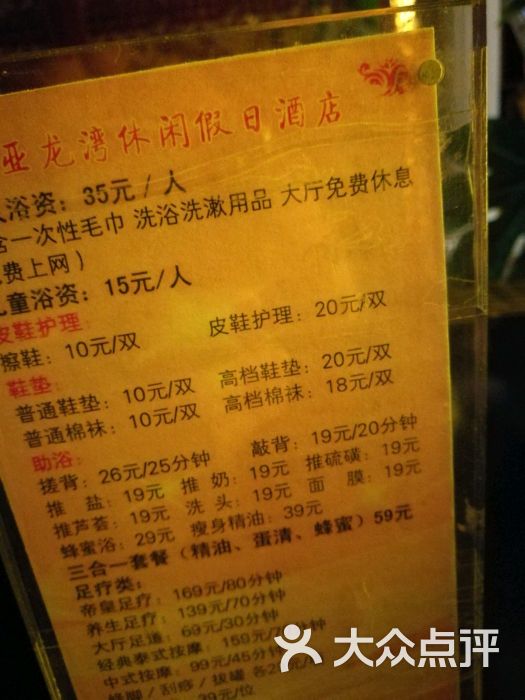 亚龙湾休闲假日酒店
人浴资：35元/人
含一次性毛巾 洗浴洗漱用品 大厅免费休息
免费上网）
儿童浴资：15元/人
皮鞋护理：
擦鞋：10元/双 皮鞋护理：20元/双
鞋垫：
普通鞋垫：10元/双 高档鞋垫：20元/双
普通棉袜：10元/双 高档棉袜：18元/双
助浴：
搓背：26元/25分钟 敲背：19元/20分钟
推盐：19元 推奶：19元 推硫磺：19元
推芦荟：19元 洗头：19元 面膜：19元
蜂蜜浴：29元 瘦身精油：39元
三合一套餐（精油、蛋清、蜂蜜）59元
足疗类：
帝皇足疗：169元/80分钟
养生足疗：139元/70分钟
大厅足道：69元/30分钟
经典泰式按摩：159元/分钟
中式按摩：99元/45分钟
修脚/刮痧/拔罐 各2
39元/位
大众点评